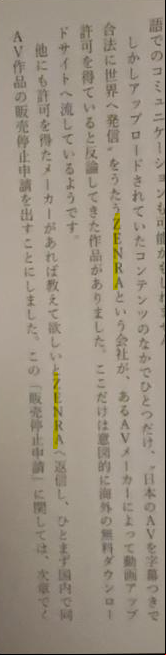 語でのコミュニケーションも可能かもしれません
しかしアップロードされていたコンテンツのなかでひとつだけ、〝日本のAVを字幕つきで
合法に世界へ発信〟をうたうZENRAという会社が、あるAVメーカーによって動画アップ
許可を得ていると反論してきた作品がありました。ここだけは意図的に海外の無料ダウンロー
ドサイトへ流しているようです。
他にも許可を得たメーカーがあれば教えて欲しいとZENRAへ返信し、ひとまず国内で同
AV作品の販売停止申請を出すことにしました。この「販売停止申請」に関しては、次章で